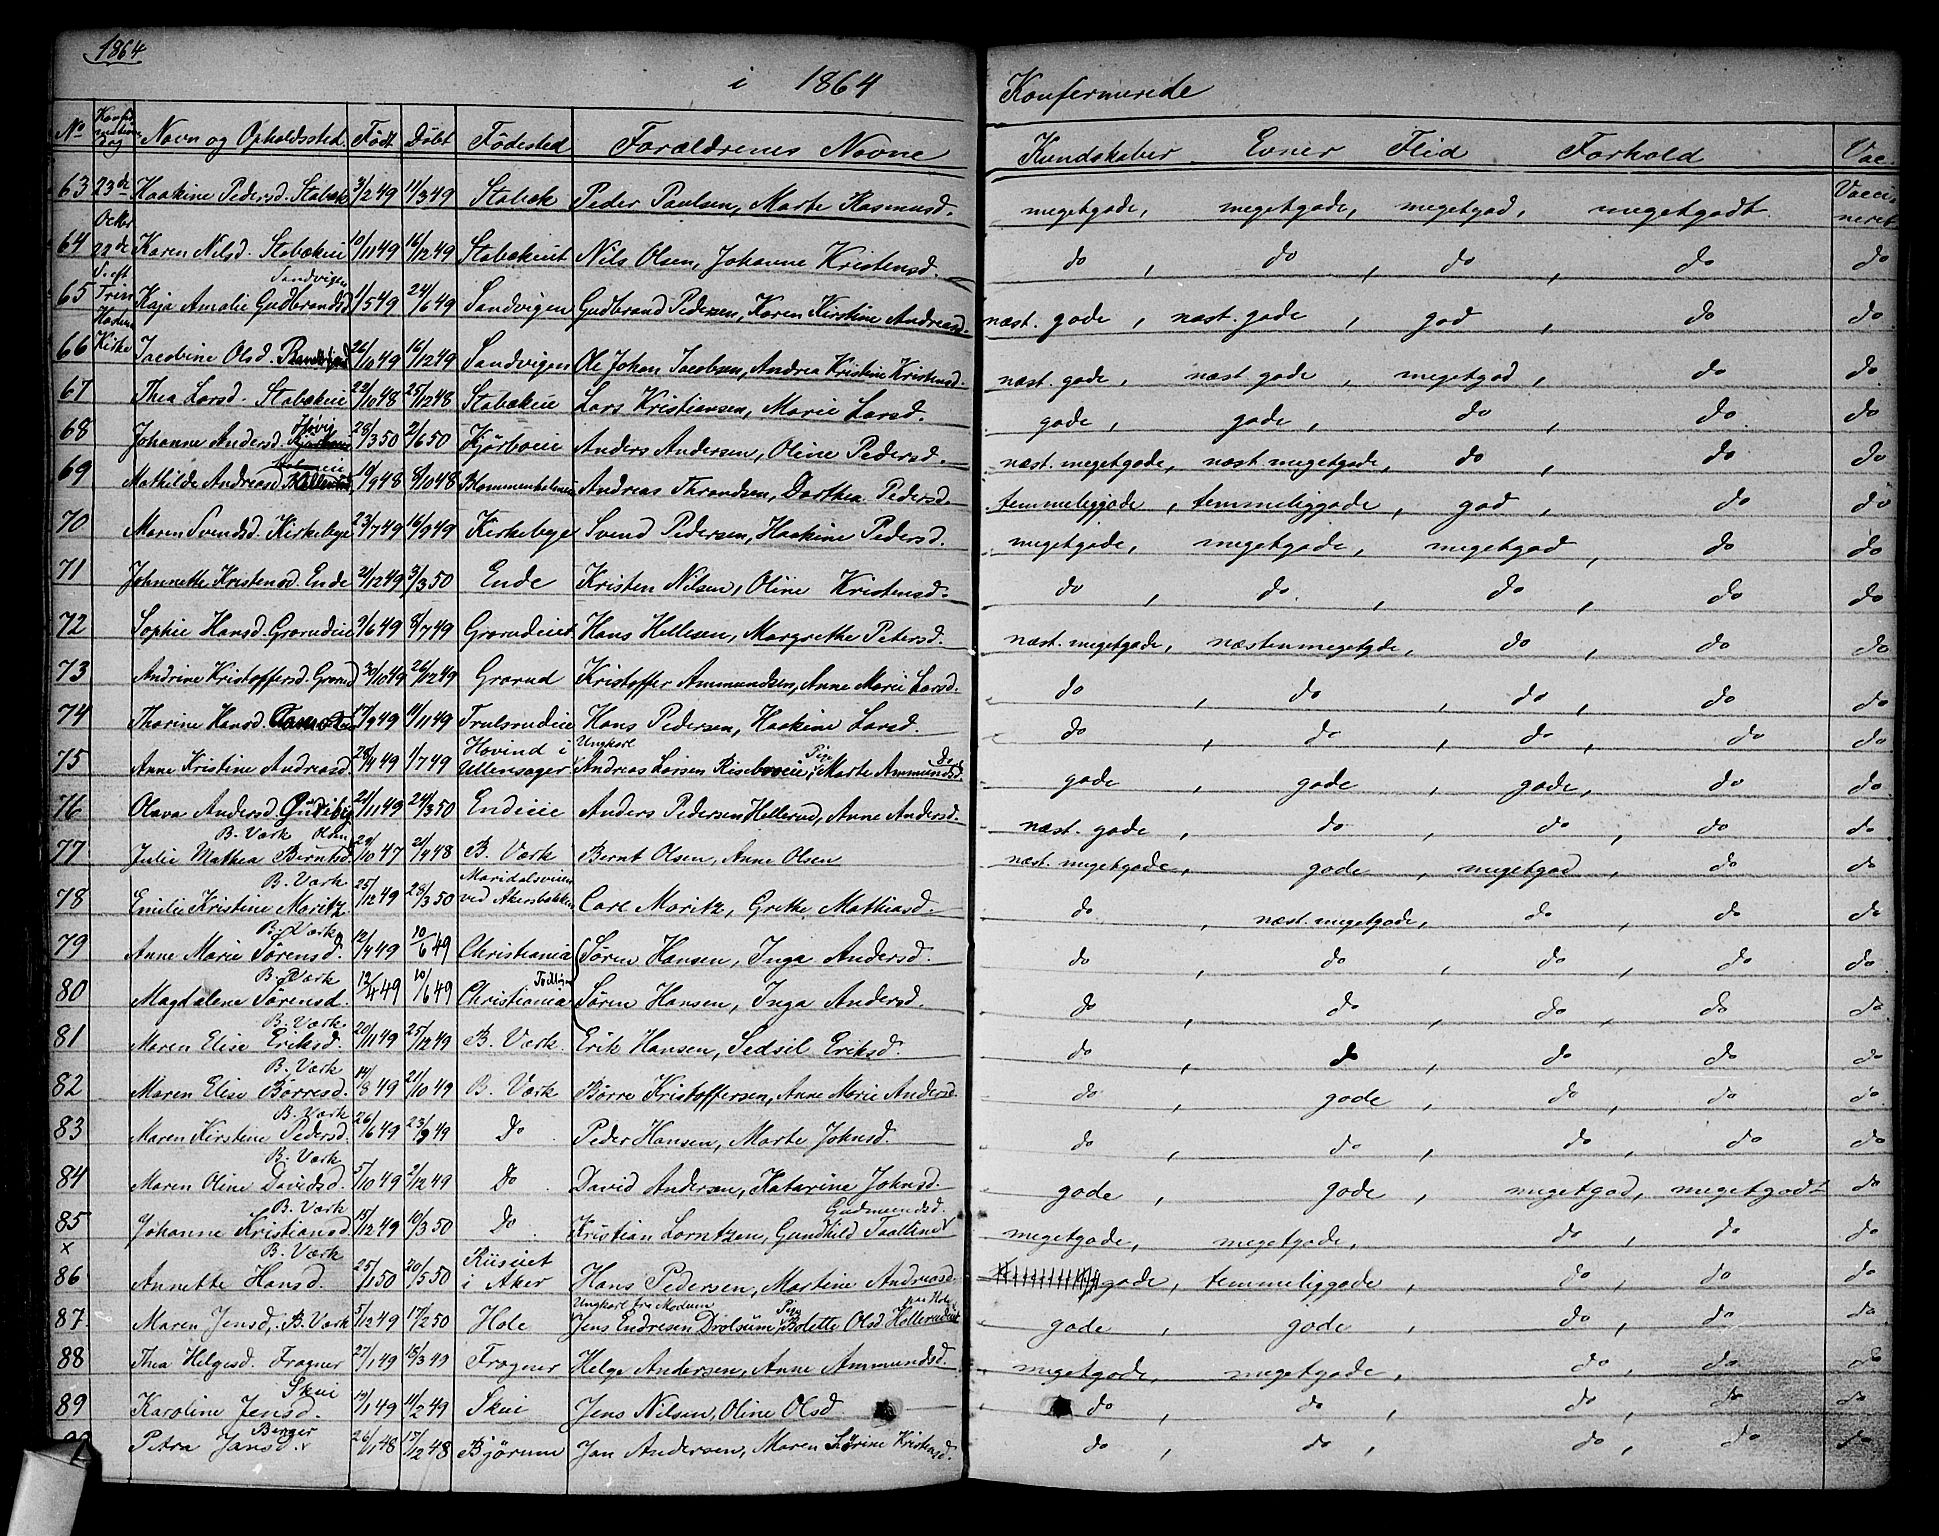 1864
i 1864 Konfermerede
No Konfirmations Dag Navn og Opholdssted Födt Döbt Födested Forældrenes Navne Kundskaber Evner Flid Forhold Vac.
63 23de Haakine Pedersd. Stabæk 3/2 49 11/3 49 Stabæk Peder Paulsen, Marte Rasmusd. megetgode, megetgode, megetgod, megetgodt. Vacci-
neret
Octbr
64 22de Karen Nilsd. Stabækeie 19/11 49 16/12 49 Stabækeiet Nils Olsen, Johanne Kristensd. do , do , do , do do
S. eft Sandvigen
65 Trin Kaja Amalie Gudbrandsd 1/5 49 24/6 49 Sandvigen Gudbrand Pedersen, Karen Kirstine Andreasd. næst. gode, næst. gode, god, do do
Haslum
66 Kirke Jacobine Olsd. 26/10 49 16/12 49 Sandvigen Ole Johan Jacobsen, Andrea Kristine Kristensd. næst. gode, næst gode, megetgod, do do
67 Thea Larsd. Stabækeie 22/10 48 25/12 48 Stabækeie Lars Kristiansen, Marie Larsd. gode, gode, do , do do
Høvig
68 Johanne Andersd. 28/3 50 2/6 50 Kjörboeie Anders Andersen, Oline Pedersd. næst. megetgode, næst megetgode, do , do do
69 Mathilde Andreasd. 19/9 48 8/10 48 Blommenholmeie Andreas Throndsen, Dorthea Pedersd. temmeliggode, temmeliggode, god, do do
70 Maren Svendsd. Kirkebye 23/7 49 16/9 49 Kirkebye Svend Pedersen, Haakine Pedersd. megetgode, megetgode, megetgod, do do
71 Johnnette Kristensd. Ende 2/12 49 3/3 50 Ende Kristen Nilsen, Oline Kristensd. do , do. , do , do do
72 Sophie Hansd. Grorudeie 9/6 49 8/7 49 Grorudeiet Hans Hellesen, Margrethe Petersd. næst. megetgode, næstenmegetgde, do , do do
73 Andrine Kristoffersd. Grorud 30/10 49 26/12 49 Grorud Kristoffer Ammundsen, Anne Marie Larsd. do , do , do , do do
74 Thorine Hansd. 17/9 49 11/11 49 Trulsrudeie Hans Pedersen, Haakine Larsd. do , do , do , do do
Hovind i Ungkarl Pige
75 Anne Kristine Andreasd. 28/4 49 1/7 49 Ullensager Andreas Larsen Riseboeie, Marte Ammundsd. gode , gode , gode, do do
76 Olava Andersd. 21/11 49 24/3 50 Endeeie Anders Pedersen Hellerud, Anne Andersd. næst. gode, do , do , do do
B. Værk Olsen
77 Julie Mathea Berntsd. 29/10 47 2/4 48 B. Værk Bernt Olsen, Anne Olsen næst. megetgode, gode , megetgod, do do
B. Værk Maridalsveien
78 Emilie Kristine Moritz 25/12 49 28/3 50 ved Akersbakken Carl Moritz, Grethe Mathiasd. do , næst. megetgode, do , do do
B. Værk
79 Anne Marie Sørensd. 12/4 49 10/6 49 Christiania Søren Hansen, Inga Andersd. do , do , do , do do
B. Værk
80 Magdalene Sørensd. 12/4 49 10/6 49 Christiania Søren Hansen, Inga Andersd. do , do , do , do do
B. Værk
81 Maren Elise Eriksd. 20/11 49 25/12 49 B. Værk Erik Hansen, Sedsil Eriksd. do , do , do , do do
B. Værk
82 Maren Elise Børresd. 14/8 49 21/10 49 B. Værk Børre Kristoffersen, Anne Marie Andersd. do , gode , do , do do
B. Værk
83 Maren Kirstine Pedersd. 26/6 49 23/9 49 Do Peder Hansen, Marte Johnsd. do , do , do , do do
B. Værk
84 Maren Oline Davidsd. 5/10 49 2/12 49 Do David Andersen, Katarine Johnsd. gode , gode , megetgod, megetgodt do
B. Værk Gudmundsd.
85 Johanne Kristiansd. 15/12 49 10/3 50 Do Kristian Lorntzen, Gundhild megetgode, megetgode, do , do do
x B. Værk
86 Annette Hansd. 25/1 50 20/5 50 i Aker Hans Pedersen, Martine Andreasd. gode, temmeliggode , do , do do
Ungkarl fra Modum Pige
87. Maren Jensd. B. Værk 5/12 49 17/2 50 Hole Jens Endresen Drolsum, Bolette Olsd Hellerudeiet gode , gode , do , do do
88 Thea Helgesd. Frogner 27/1 49 18/3 49 Frogner Helge Andersen, Anne Ammundsd. megetgode, megetgode, do , do do
Skui
89 Karoline Jensd. 19/1 49 11/2 49 Skui Jens Nilsen, Oline Olsd do , do , do , do do
Berger
Petra Jansd. 26/1 48 17/12 48 Bjørum Jan Andersen, Maren Sørine Kristensd. do , do , do , do do